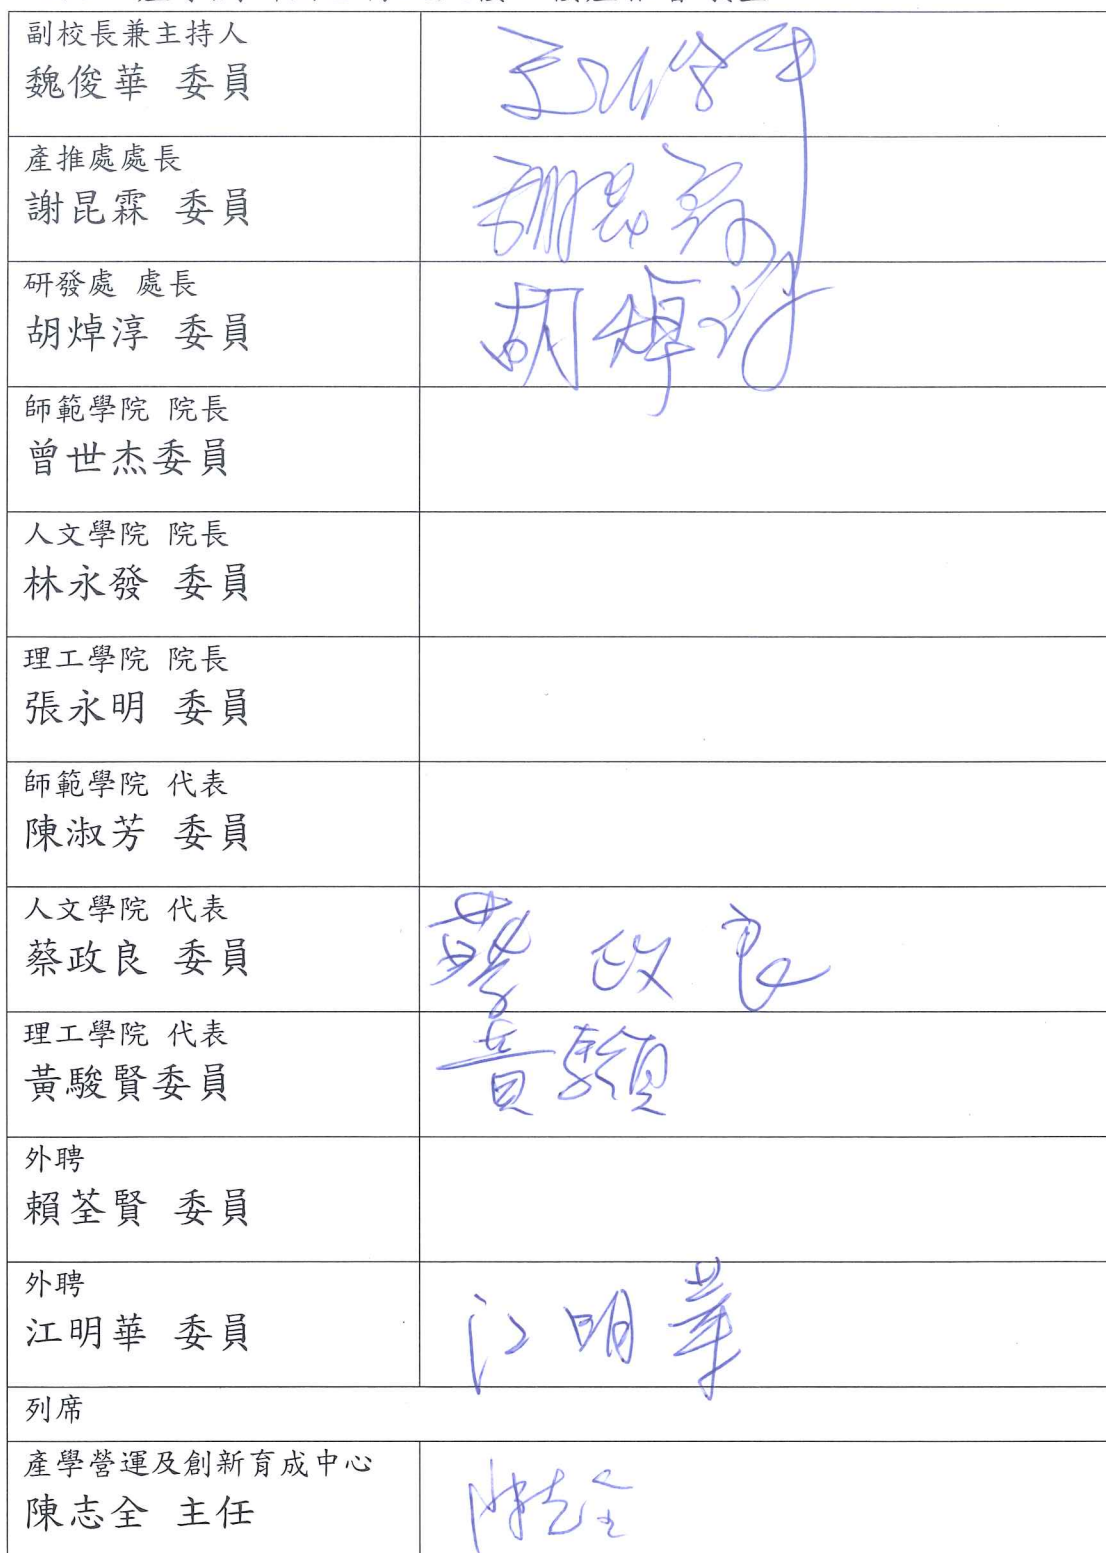 副校長兼主持人
魏俊華 委員
產推處處長
謝昆霖 委員
謝昆霖
研發處 處長
胡焯淳 委員
胡焯淳
師範學院 院長
曾世杰委員
人文學院 院長
林永發 委員
理工學院 院長
張永明 委員
師範學院 代表
陳淑芳 委員
人文學院 代表
蔡政良 委員
蔡政良
理工學院 代表
黃駿賢委員
外聘
賴荃賢 委員
外聘
江明華 委員
江明華
列席
產學營運及創新育成中心
陳志全 主任
陳志全